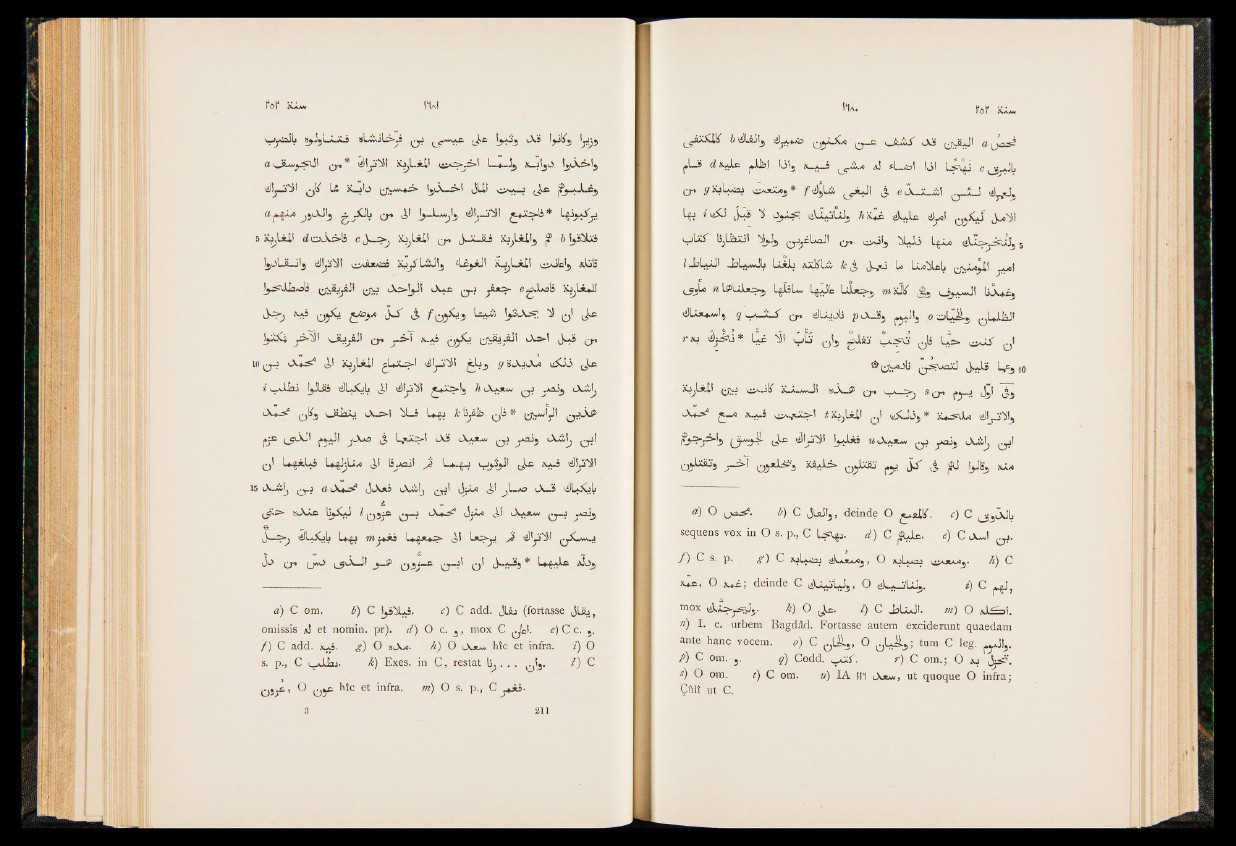 سنة ٢٥٢ ١٦٨٠
فحصّ a اليقين قد كشف عن مكنون ضميرك وألفاك b كالمكتفى
بالبرق c نهجا اذا اضاء له مشى فيه واذا اظلم عليه d قام
ولعمرك لئن اشتدّ e فى البغى شأوك f *ومتعت بصبابة g من
الامل ليكون امرك عليك غمّة h ولنأتينّك بجنود لا قبل لك i بها
5 ولنخرجنّك منها ذليلا وانت من الصاغرين ولولا انتظارنا كتاب
امير المؤمنين باعلامنا ما نعمل فى k شاكلته بلغنا بالسياط النياط l
وغمدنا السيوف وهى كالّة m وجعلنا عاليها سافلها وجعلناها n مأوى
الظلمان والحيّات o واليوم p وقد ناديناك من كثب q واسمعناك
ان كنت حيّا فان تجب تفلح وان تأب الّا غيّا *نخزك به r
10 وعمّا قليل لتصبحنّ نادمين
وفى اوّل يوم من s رجب من هذه السنة كانت بين المغاربة
والاتراك ملحمة *وذلك ان المغاربة t اجتمعت فيه مع محمّد
ابن راشد ونصر بن سعيد u فغلبوا الاتراك على الجوسق واخرجوهم
منه وقالوا لهم فى كلّ يوم تقتلون خليفة وتخلعون آخر وتقتلون
a) O محص. b) C والقال, deinde O كالمقبع. c) C بالدوى
sequens vox in O s. p., C بهيجا. d) C عليهم. e) C بن اسد.
f) C s. p. g) C ومتعتك بصبابه, O ومتعت بصبابه. h) C
عمه, O غمه; deinde C ولياتينك, O ولناتينك. i) C لهم,
mox وليخرجنك. k) O على. l) C المناط. m) O اكله.
n) I. e. urbem Bagdâd. Fortasse autem exciderunt quaedam
ante hanc vocem. o) C والخان, O والحيان; tum C leg. والبوم.
p) C om. و. q) Codd. كتب. r) C om.; O نخزل به.
s) O om. t) C om. u) IA ١١٩ سعد, ut quoque O infra;
Çûlî ut C.
سنة ٢٥٢ ١٦٨١
وزيرا وكانوا قد وثبوا على عيسى بن فرّخانشاه فتناولوه بالضرب
واخذوا دوابّه ولمّا اخرجت المغاربة الاتراك *من الجوسق a
وغلبوهم على بيت المال اخذوا خمسين دابّة ممّا كان الاتراك
يركبونها *فاجتمع الاتراك وارسلوا الى من بالكرخ والدور منهم a
5 فتلاقوا b هم والمغاربة فقتل من المغاربة رجل c فاخذت d المغاربة
قاتله واعانت المغاربة الغوغاء والشاكريّة فضعف الاتراك وانقادوا
للمغاربة فاصلح e جعفر بن عبد الواحد بين الفريقين فاصطلحوا
على ان لا يحدثوا شيئا ويكون f فى كلّ موضع يكون فيه رجل
من قبل احد الفريقين يكون فيه آخر من الفريق الآخر فمكثوا
10 على ذلك مديدة g وبلغ الاتراك اجتماع المغاربة الى محمّد بن
راشد ونصر بن سعيد h واجتمع الاتراك الى بايكباك فقالوا نطلب i
هذين الرأسين *فان ظفرنا k بهما فلا احد ينطق وكان محمّد
ابن راشد ونصر بن سعيد قد اجتمعا فى صدر اليوم الذى عزم
الاتراك فيه على الوثوب بهما ثم انصرفا الى منازلهما فبلغهما ان
15 بايكباك قد صار الى منزل ابن راشد فعدل محمّد a بن راشد
ونصر بن سعيد الى منزل محمّد بن عزّون l ليكونا عنده حتى
يسكن الاتراك ثم يرجعا الى جمعهما فغمز m بهما بايكباك رجل
ودلّه عليهما *وقيل ان ابن عزّون هو الذى دسّ من دلّ
a) C om. b) C فيلاقوا. c) C add. يقال (fortasse يقال,
omissis له et nomin. pr). d) O c. و, mox C اعان. e) C c. و.
f) C add. فيه. g) O مده. h) O سعد hîc et infra. i) O
s. p., C يطلب. k) Exes. in C, restat وان . . . رنا. l) C
عزون, O عون hîc et infra. m) O s. p., C فغمر.
3 211